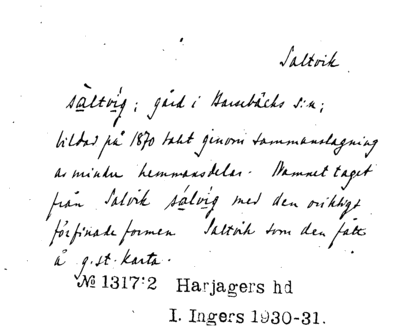 Saltvik
sàltvíg; gård i Barsebäcks s:n;
bildad på 1870 talet genom sammanslagning
av mindre hemmansdelar. Namnet taget
från Salvik sálvíg med den oriktigt
förfinade formen Saltvik som den fått
å g.st. karta.
№ 1317:2 Harjagers hd
I. Ingers 1930-31.